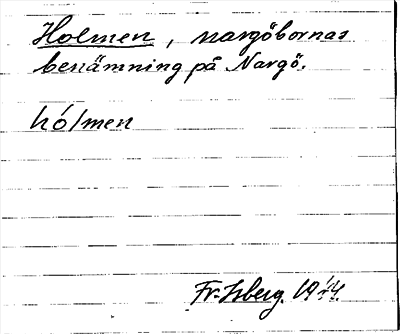 Holmen, nargöbornas
benämning på Nargö.
hólmen
Fr. Isberg. 19